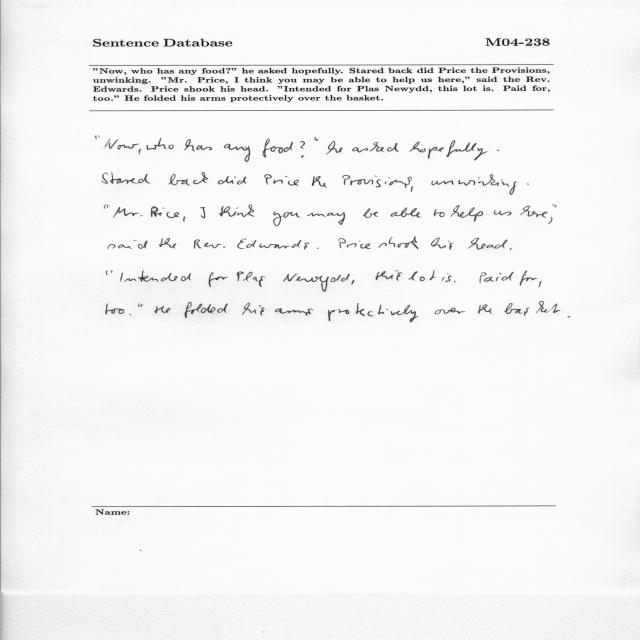 Sentence Database M04-238
"Now, who has any food?" he asked hopefully. Stared back did Price the Provisions,
unwinking. "Mr. Price, I think you may be able to help us here," said the Rev.
Edwards. Price shook his head. "Intended for Plas Newydd, this lot is. Paid for,
too." He folded his arms protectively over the basket.
"Now, who has any food?" he asked hopefully.
Stared back did Price the Provisions, unwinking.
"Mr. Price, I think you may be able to help us here,"
said the Rev. Edwards. Price shook his head.
"Intended for Plas Newydd, this lot is. Paid for,
too." He folded his arms protectively over the basket.
Name: